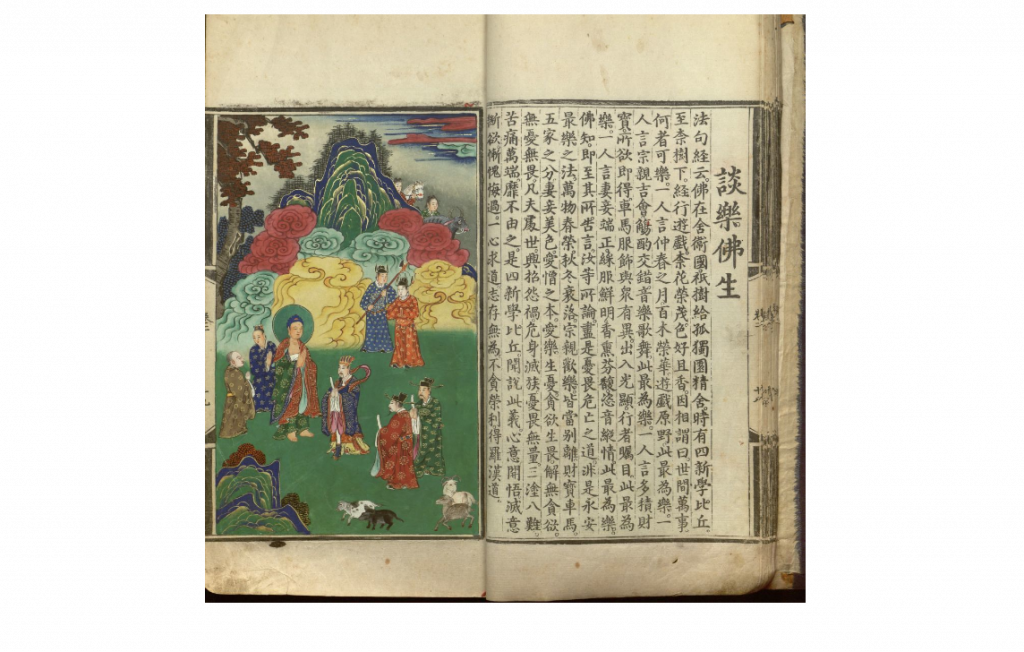 談樂佛生
法句經云。佛在舍衛國祇樹給孤獨園精舍時有四新學比丘。
至柰樹下經行遊戲柰花榮茂色好且香因相謂曰世間萬事。
何者可樂。一人言仲春之月百木榮華遊戲原野此最為樂。一
人言宗親吉會觴酌交錯音樂歌舞此最為樂。一人言多積財
寶所欲即得車馬服飾與眾有異出入光顯行者矚目此最為
樂。一人言妻妾端正綵服鮮明香熏芬馥恣音縱情此最為樂。
佛知。即至其所告言汝等所論盡是憂畏危亡之道非是永安
最樂之法。萬物春榮秋冬衰落宗親歡樂皆當別離財寶車馬。
五家之分妻妾美色愛憎之本。愛樂生憂貪欲生畏解無貪欲。
無憂無畏凡夫處世。興招怨禍危身滅族憂畏無量三塗八難。
苦痛萬端。靡不由之。是四新學比丘聞說此義。心意開悟滅意
斷欲慚愧悔過。一心求道志存無為不貪榮利得羅漢道。